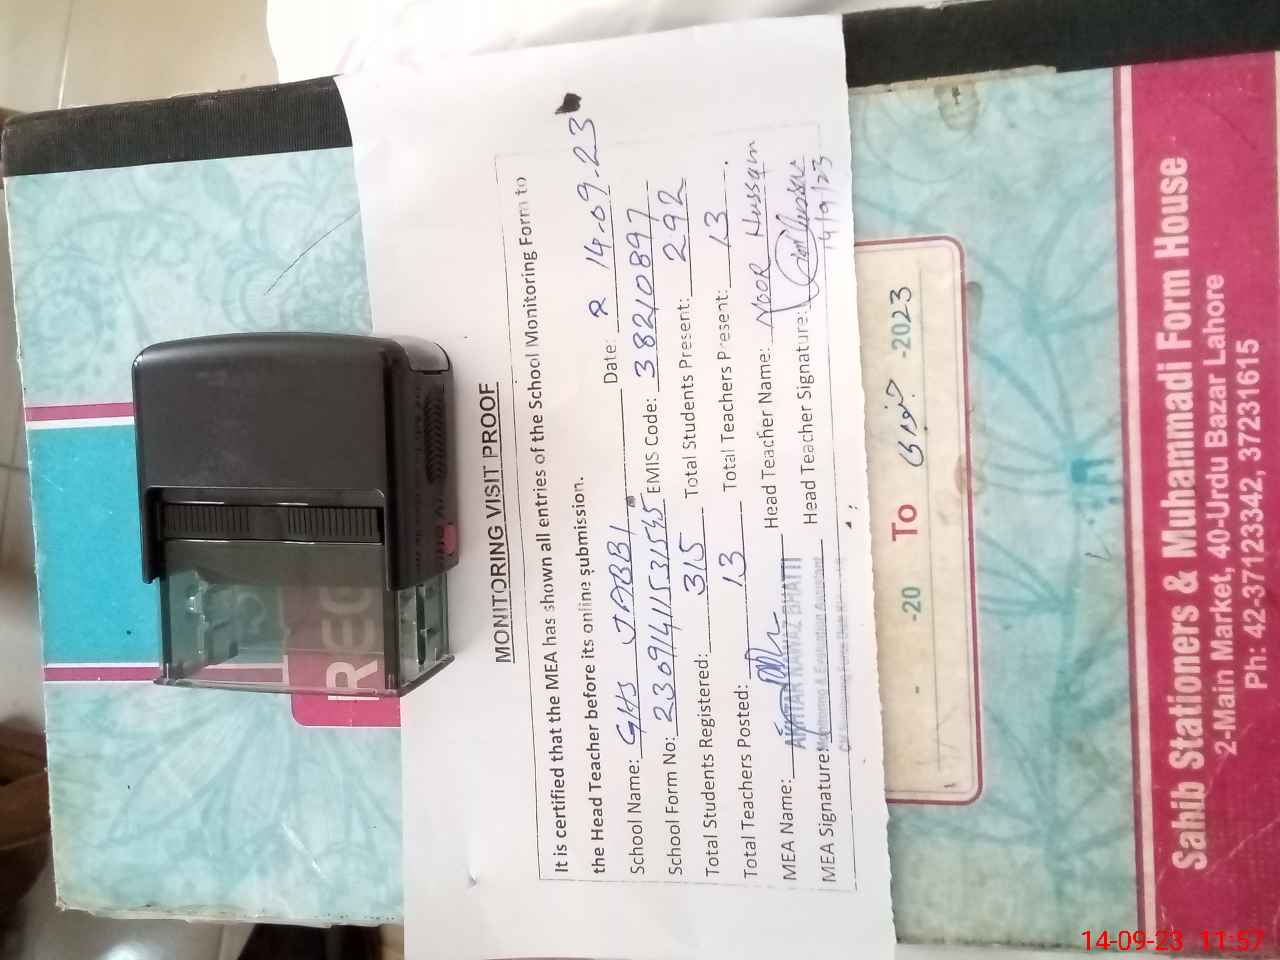 MONITORING VISIT PROOF
It is certified that the MEA has shown all entries of the School Monitoring Form to
the Head Teacher before its online submission.
School Name: GHS JABBI Date: 14-09-23
School Form No: 23091411531545 EMIS Code: 38210897
Total Students Registered: 315 Total Students Present: 292
Total Teachers Posted: 13 Total Teachers Present: 13.
MEA Name: AKHTAR NAWAZ BHATTI Head Teacher Name: NOOR Hussain
MEA Signature: Head Teacher Signature:
Monitoring & Evaluation Assistant
14/9/23
REG
- -20 To جنوری -2023
Sahib Stationers & Muhammadi Form House
2-Main Market, 40-Urdu Bazar Lahore
Ph: 42-37123342, 37231615
14-09-23 11:57